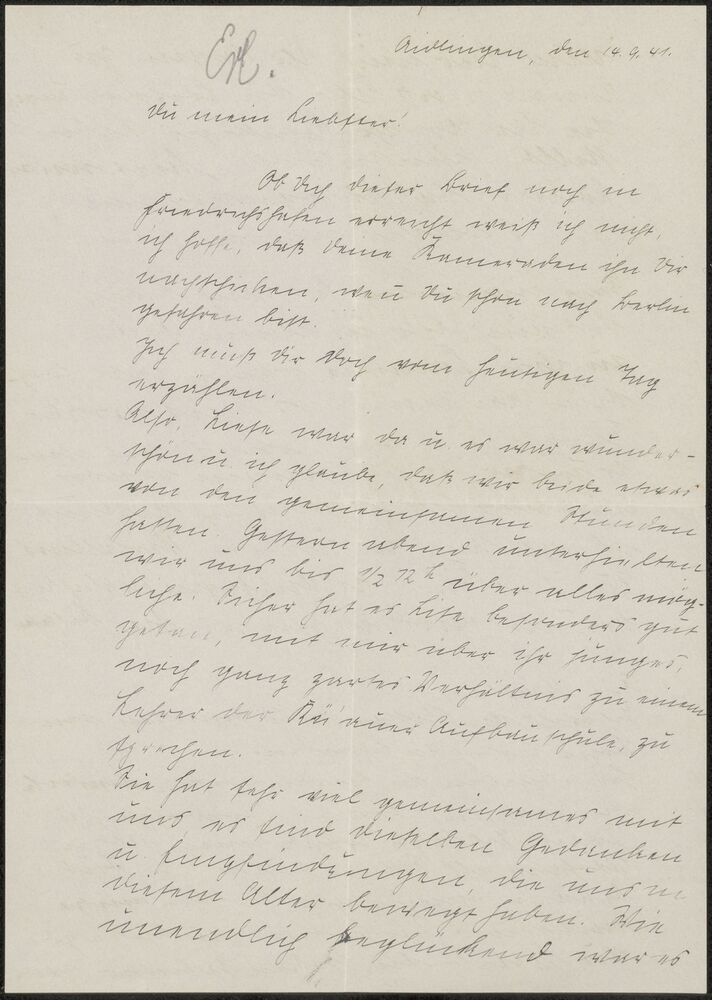 Erl.
Aidlingen, den 14.9.41.
Du mein Liebster!
Ob Dich dieser Brief noch in
Friedrichshafen erreicht weiß ich nicht,
ich hoffe, daß Deine Kameraden ihn Dir
nachschicken, wenn Du schon nach Berlin
gefahren bist.
Ich muß Dir doch vom heutigen Tag
erzählen.
Also, Liese war da u. es war wunder-
schön u. ich glaube, daß wir beide etwas
von den gemeinsamen Stunden
hatten. Gestern abend unterhielten
wir uns bis 1/2 12 h über alles mög-
liche. Sicher hat es Lise besonders gut
getan, mit mir über ihr junges,
noch ganz zartes Verhältnis zu einem
Lehrer der Aufbauschule, zu
sprechen.
Sie hat sehr viel gemeinsames mit
uns, es sind dieselben Gedanken
u. Empfindungen, die uns in
diesem Alter bewegt haben. Wie
unendlich beglückend war es